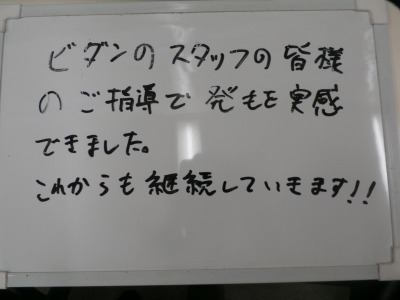 ビダンのスタッフの皆様
のご指導で発もを実感
できました。
これからも継続していきます!!